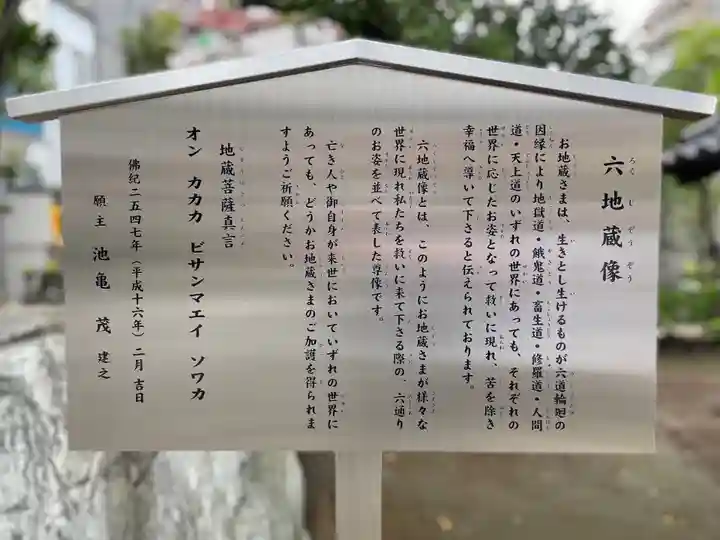 六地蔵像
お地蔵さまは、生きとし生けるものが六道輪廻の
因縁により地獄道・餓鬼道・畜生道・修羅道・人間
道・天上道のいずれの世界にあっても、それぞれの
世界に応じたお姿となって救いに現れ、苦を除き
幸福へ導いて下さると伝えられております。
六地蔵像とは、このようにお地蔵さまが様々な
世界に現れ私たちを救いに来て下さる際の、六通り
のお姿を並べて表した尊像です。
亡き人や御自身が来世においていずれの世界に
あっても、どうかお地蔵さまのご加護を得られま
すようご祈願ください。
地蔵菩薩真言
オン カカカ ビサンマエイ ソワカ
佛紀二五四七年（平成十六年）二月 吉日
願主 池亀 茂 建之